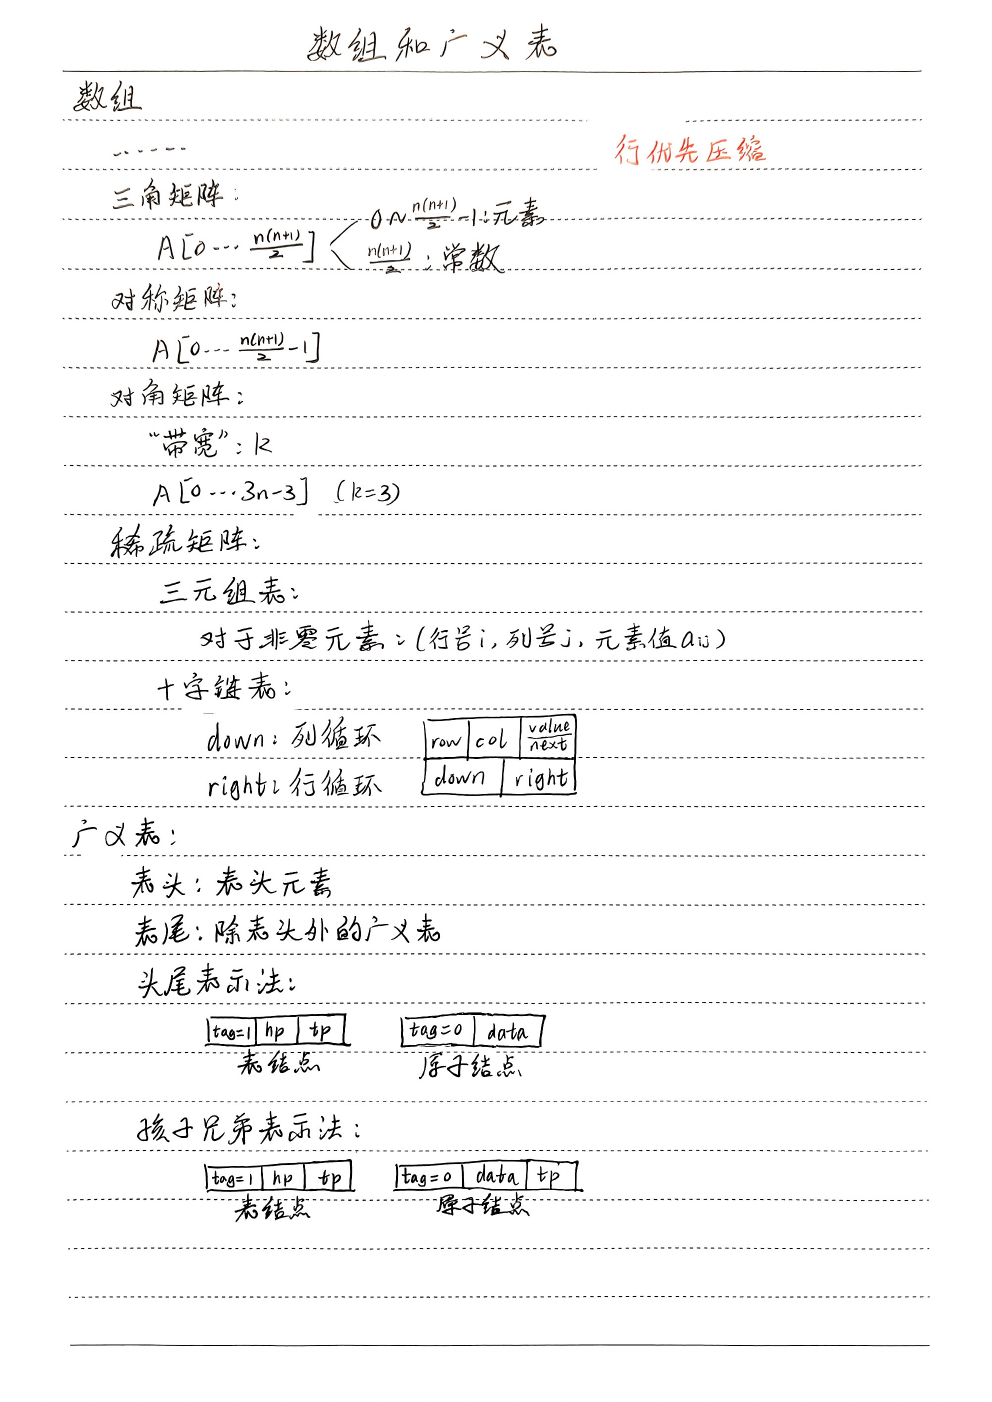 数组和广义表
数组
------
行优先压缩
三角矩阵:
A[0... n(n+1)/2]
0~n(n+1)/2-1:元素
n(n+1)/2:常数
对称矩阵:
A[0... n(n+1)/2-1]
对角矩阵:
“带宽”:k
A[0...3n-3] (k=3)
稀疏矩阵:
三元组表:
对于非零元素:(行号i,列号j,元素值aij)
十字链表:
down:列循环
row col value/next
right:行循环
down right
广义表:
表头:表头元素
表尾:除表头外的广义表
头尾表示法:
tag=1 hp tp tag=0 data
表结点 原子结点
孩子兄弟表示法:
tag=1 hp tp tag=0 data tp
表结点 原子结点